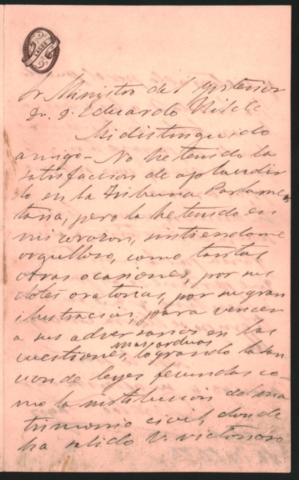 Sr Ministro del Ynterior
Dr. D. Eduardo Wilde
Mi distinguido
amigo- No he tenido la
satisfaccion de aplaudir
lo en la Tribuna Parlamen
taria, pero la he tenido en
mi corazon, sintiendome
orgulloso, como tantas
otras ocasiones, por sus
dotes oratorias, por su gran
ilustracion, para vencer
a sus adversarios en las
mas arduas
cuestiones, logrando la san
cion de leyes fecundas co
mo la institucion del ma
trimonio civil, donde
ha salido V. victorioso